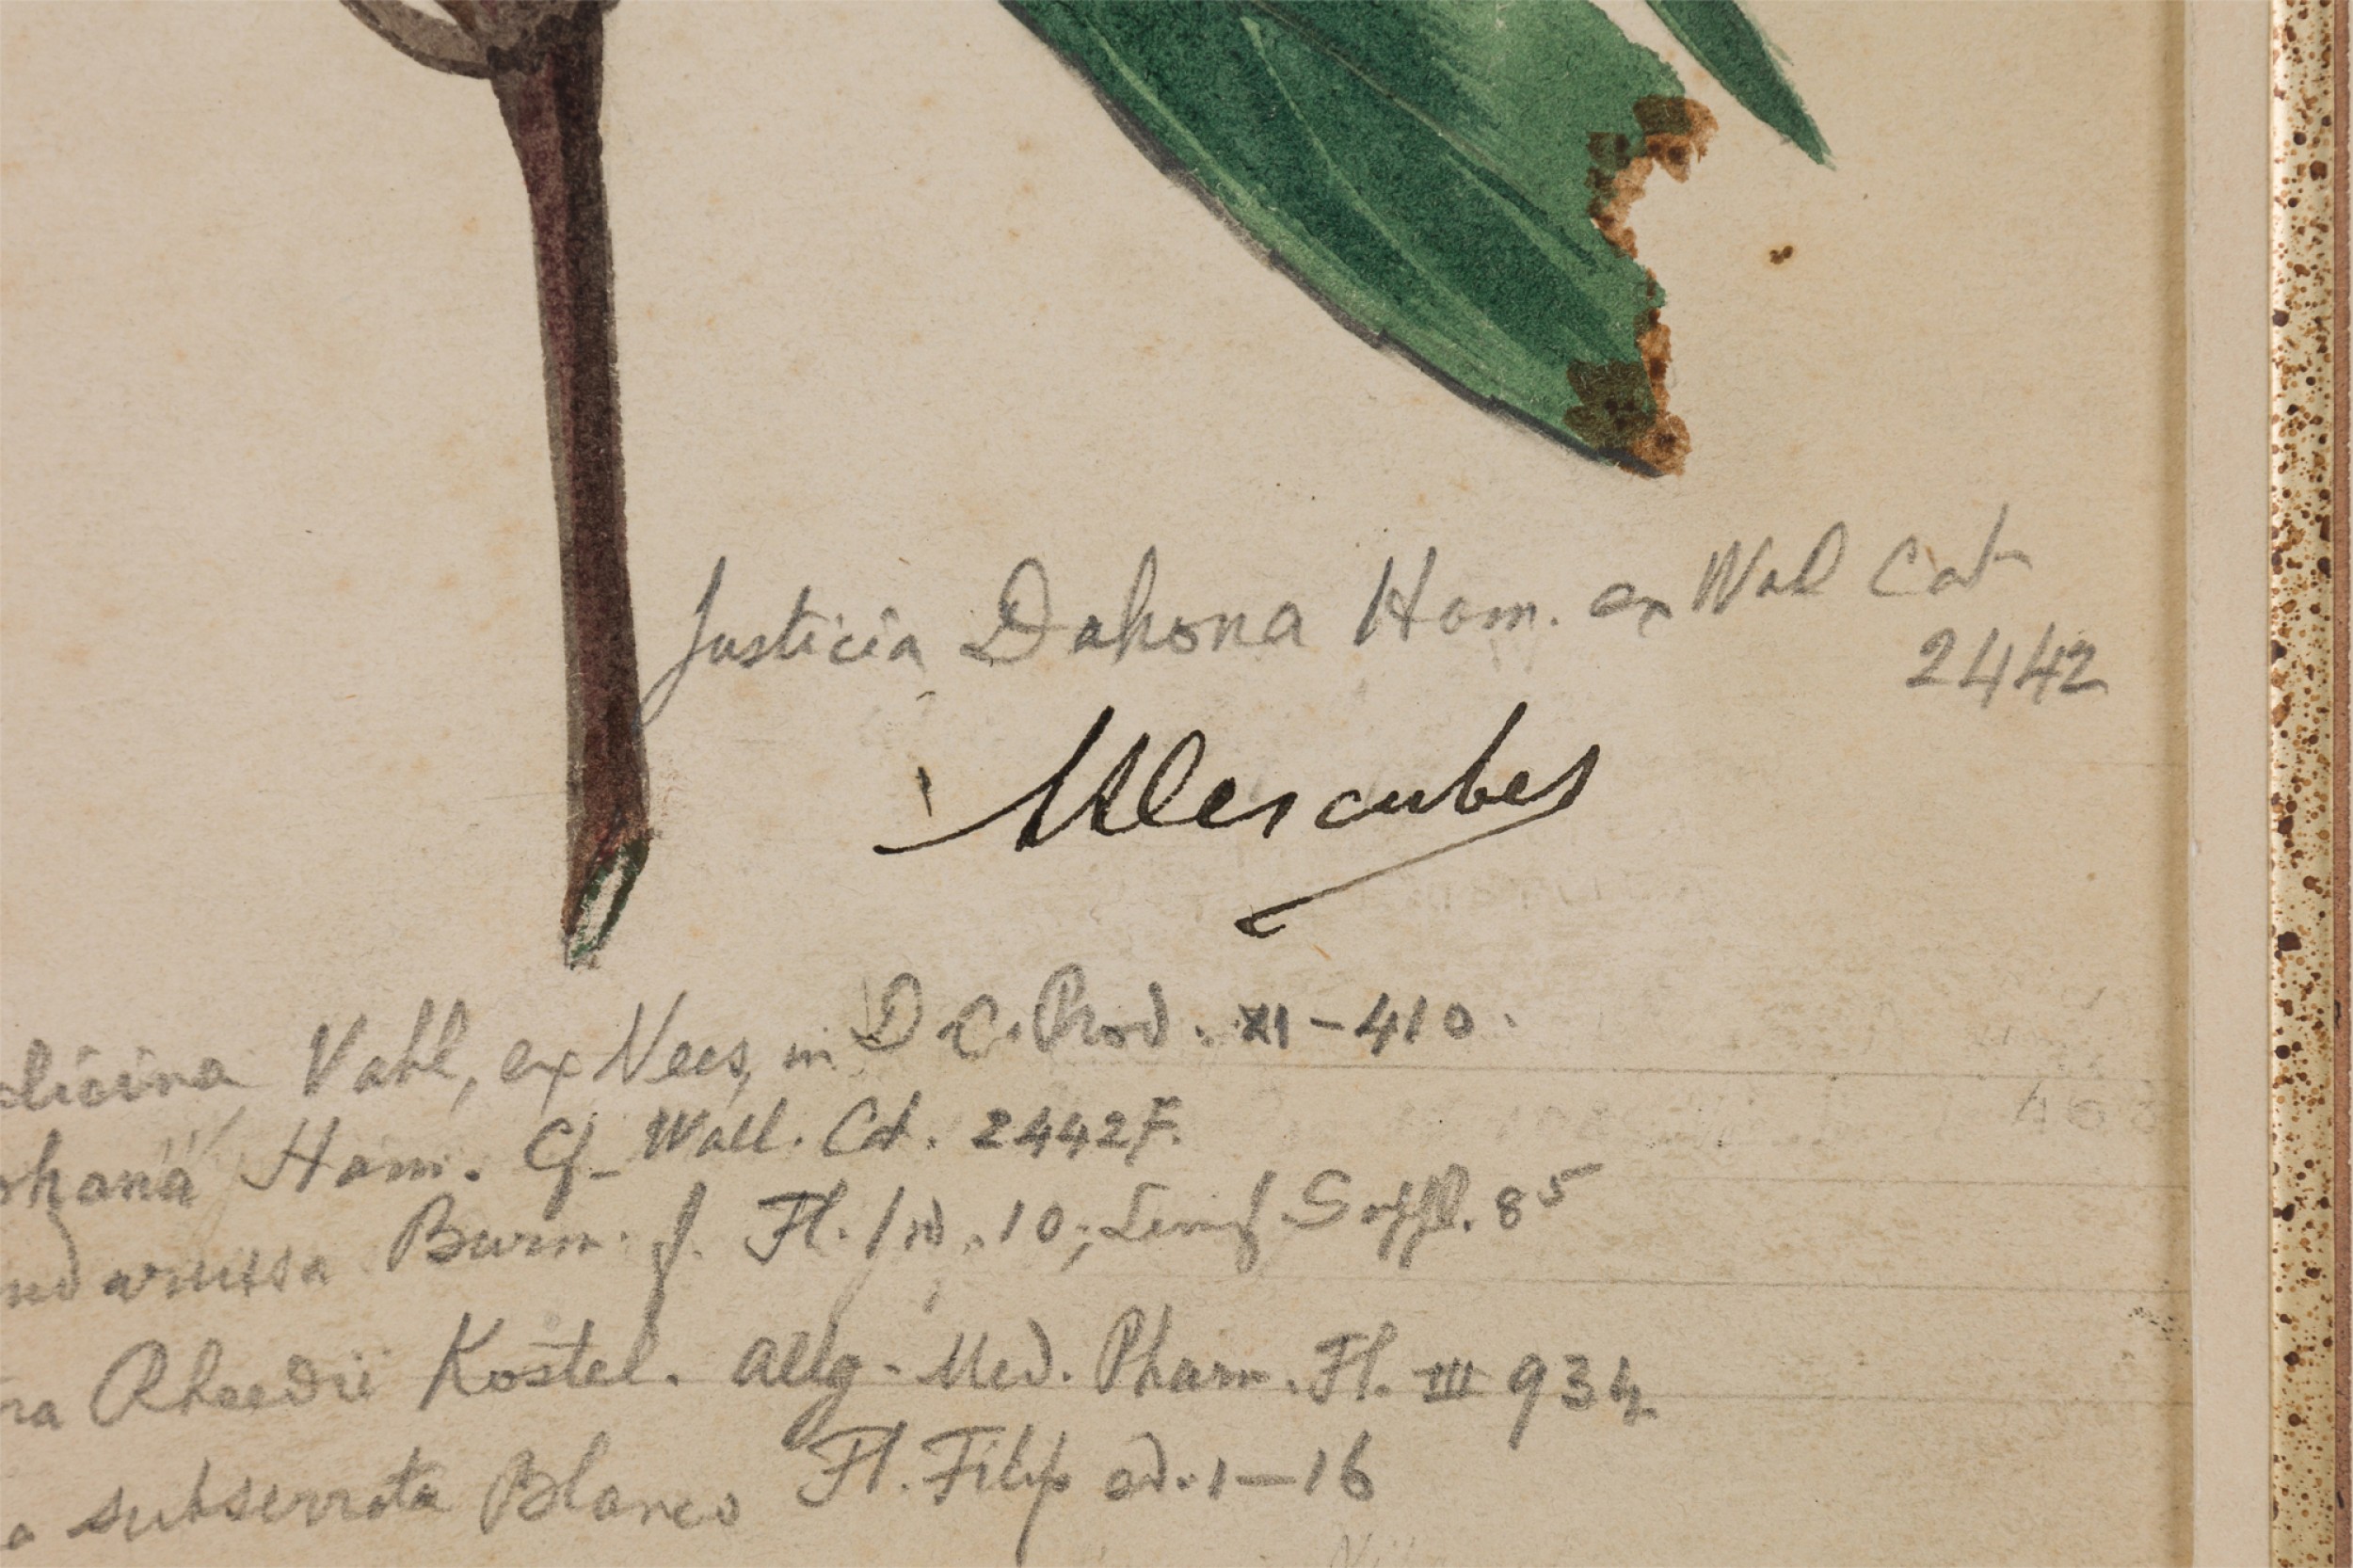 Justicia Dahona Ham. ex Wal Cat
2442
Ullescubes
Vahl, ex Nees, in D C. Prod. XI-410.
Ham. Cf_ Wall. Cat. 2442F.
Burm. f. Fl. Ind. 10; Linf. Suppl. 85
Rheedii Kostel. allg. Med. Pharm. Fl. III 934
subserrata Blanco Fl. Filip ed. 1-16